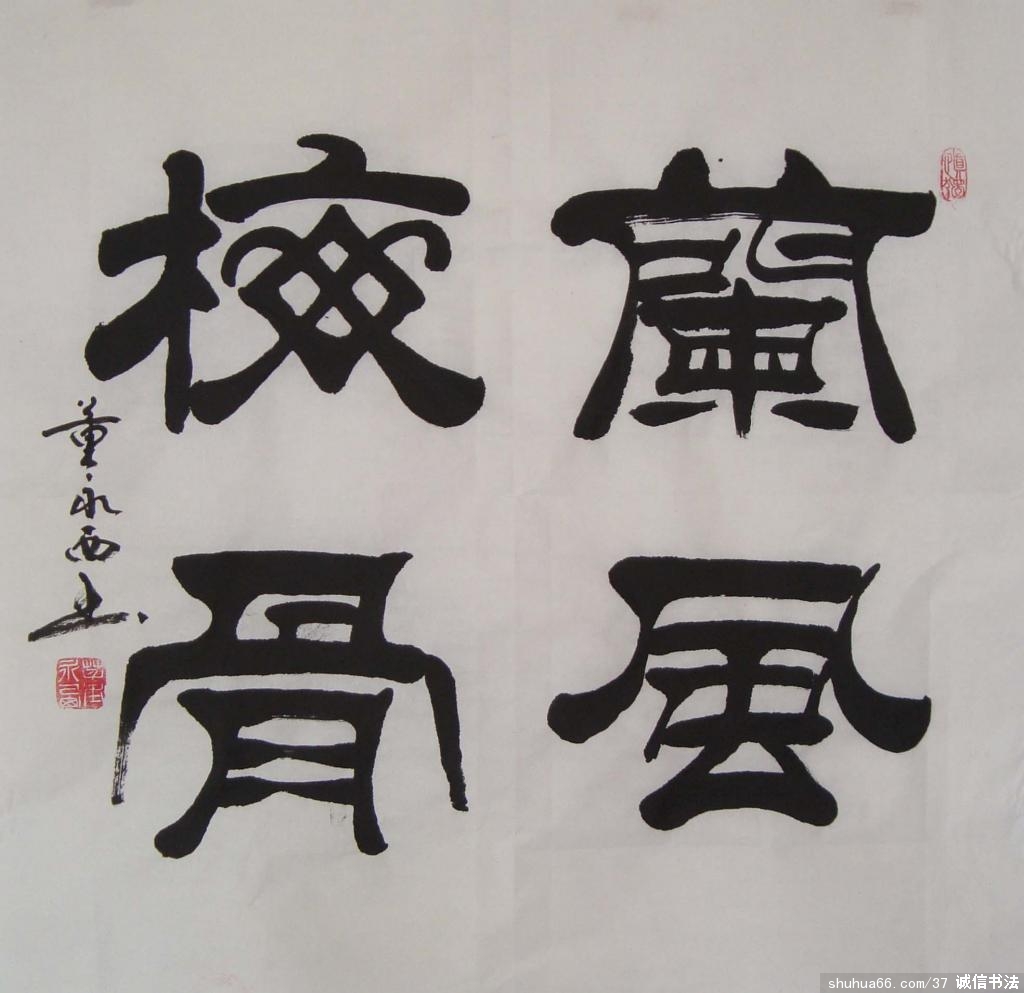 蘭風
梅骨
董永西书
shuhua66.com/37 诚信书法